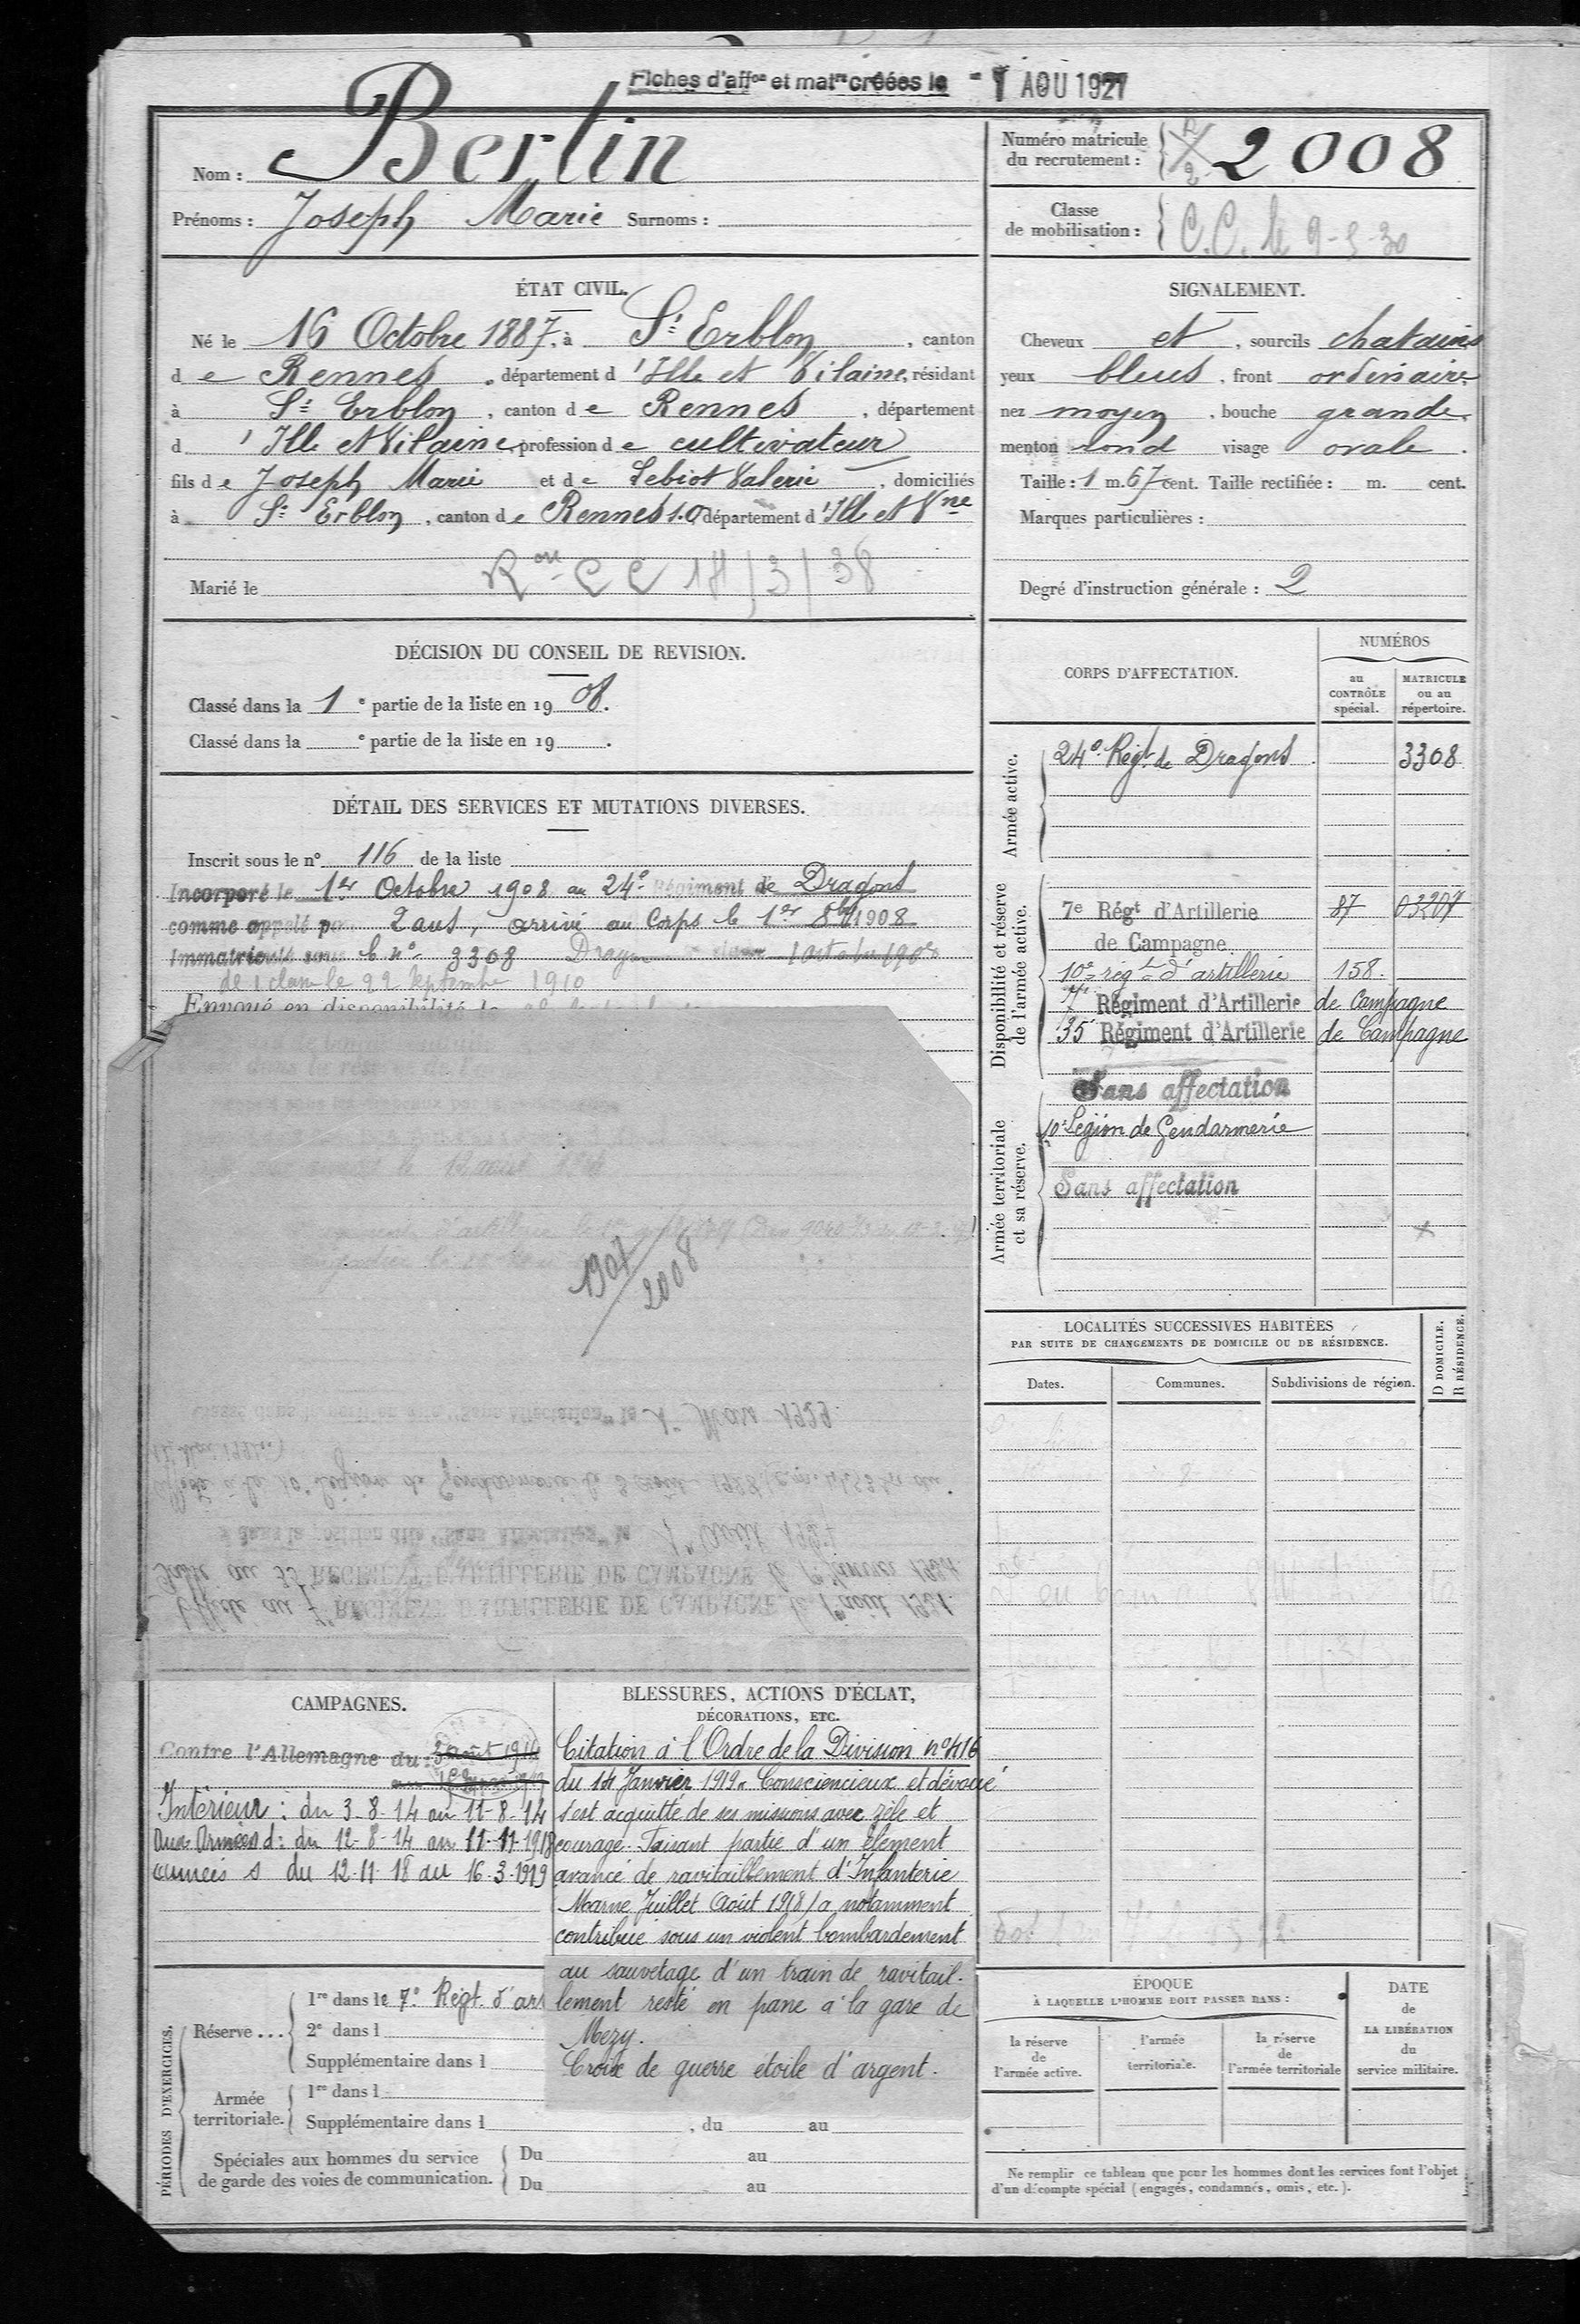 Fiches d'aff^on et mat^re créées le - 1 AOU 1927
Nom : Bertin
Prénoms : Joseph Marie Surnoms :
Numéro matricule
du recrutement : 2008
Classe
de mobilisation : C.C. le 9-5-30
ÉTAT CIVIL.
Né le 16 Octobre 1887, à St Erblon, canton
de Rennes, département d'Ille et Vilaine, résidant
à St Erblon, canton de Rennes, département
d'Ille et Vilaine, profession de cultivateur
fils de Joseph Marie et de Lebiot Valerie, domiciliés
à St Erblon, canton de Rennes s.o, département d'Ille et Vne
Ron CC 18/3/38
Marié le
SIGNALEMENT.
Cheveux et, sourcils chatains
yeux bleus, front ordinaire
nez moyen, bouche grande
menton rond visage ovale.
Taille : 1 m. 67 cent. Taille rectifiée : m. cent.
Marques particulières :
Degré d'instruction générale : 2
DÉCISION DU CONSEIL DE REVISION.
Classé dans la 1e partie de la liste en 1908.
Classé dans la e partie de la liste en 19 .
DÉTAIL DES SERVICES ET MUTATIONS DIVERSES.
Inscrit sous le n° 116 de la liste
Incorporé le 1er Octobre 1908 au 24e Régiment de Dragons
comme appelé po 2 ans, arrivé au Corps le 1er 8bre 1908
Immatriculé sous le n° 3308 Dragon
de 1 classe le 22 Septembre 1910
Envoyé en disponibilité le
1907
2008
Classé dans la position dite "Sans Affectation" le 1er Mars 1929.
Affecté à la 10e Légion de Gendarmerie le 8 août 1928
dans la position dite "Sans Affectation" le 1er Août 1927
Passé au 35e REGIMENT D'ARTILLERIE DE CAMPAGNE le 1er Janvier 1924.
Affecté au 7e REGIMENT D'ARTILLERIE DE CAMPAGNE le 1er août 1921.
CORPS D'AFFECTATION.
NUMÉROS
au
CONTRÔLE
spécial.
MATRICULE
ou au
répertoire.
Armée active.
24e Régt de Dragons 3308
Disponibilité et réserve
de l'armée active.
7e Régt d'Artillerie 87 03207
de Campagne
10e régt d'artillerie 158.
7e Régiment d'Artillerie de Campagne
35e Régiment d'Artillerie de Campagne
Sans affectation
Armée territoriale
et sa réserve.
10e Légion de Gendarmerie
Sans affectation
LOCALITÉS SUCCESSIVES HABITÉES
PAR SUITE DE CHANGEMENTS DE DOMICILE OU DE RÉSIDENCE.
D DOMICILE.
R RÉSIDENCE.
Dates. Communes. Subdivisions de région.
CAMPAGNES.
Contre l'Allemagne du : 3 août 1914
Intérieur : du 3-8-14 au 11-8-14
Aux Armées d : du 12-8-14 au 11-11-1918
armées s du 12-11-18 au 16-3-1919
BLESSURES, ACTIONS D'ÉCLAT,
DÉCORATIONS, ETC.
Citation à l'Ordre de la Division n° 416
du 14 Janvier 1919 « Consciencieux et dévoué
s'est acquitté de ses missions avec zèle et
courage. Faisant partie d'un élément
avancé de ravitaillement d'Infanterie
Marne Juillet Août 1918) a notamment
contribué sous un violent bombardement
au sauvetage d'un train de ravitail-
lement resté en pane à la gare de
Mezy.
Croix de guerre étoile d'argent.
PÉRIODES D'EXERCICES.
Réserve ... 1re dans le 7e Régt. d'art
2e dans l
Supplémentaire dans l
Armée
territoriale. 1re dans l
Supplémentaire dans l , du au
Spéciales aux hommes du service
de garde des voies de communication.
Du au
Du au
ÉPOQUE
À LAQUELLE L'HOMME DOIT PASSER DANS :
la réserve
de
l'armée active.
l'armée
territoriale.
la réserve
de
l'armée territoriale
DATE
de
LA LIBÉRATION
du
service militaire.
Ne remplir ce tableau que pour les hommes dont les services font l'objet
d'un décompte spécial (engagés, condamnés, omis, etc.).